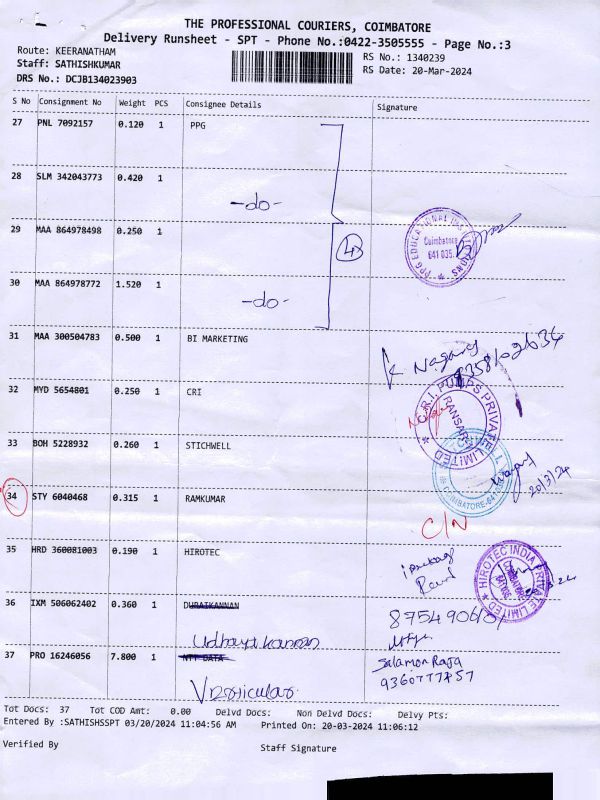 THE PROFESSIONAL COURIERS, COIMBATORE
Delivery Runsheet - SPT - Phone No.:0422-3505555 - Page No.:3
Route: KEERANATHAM
Staff: SATHISHKUMAR
DRS No.: DCJB134023903
RS No.: 1340239
RS Date: 20-Mar-2024
S No Consignment No Weight PCS Consignee Details Signature
27 PNL 7092157 0.120 1 PPG
28 SLM 342043773 0.420 1
-do-
29 MAA 864978498 0.250 1
4
PPG EDUCATIONAL INSTITUTIONS
Coimbatore
641 035.
30 MAA 864978772 1.520 1
-do-
31 MAA 300504783 0.500 1 BI MARKETING
K Nagaraj
32 MYD 5654801 0.250 1 CRI
C.R.I. PUMPS PRIVATE LIMITED
33 BOH 5228932 0.260 1 STICHWELL
20/3/24
34 STY 6040468 0.315 1 RAMKUMAR
C/N
35 HRD 360081003 0.190 1 HIROTEC
HIROTEC INDIA PRIVATE LIMITED
36 IXM 506062402 0.360 1 DURAIKANNAN
Udhaya kannan
37 PRO 16246056 7.800 1 NTT DATA
Salamon Raja
Tot Docs: 37 Tot COD Amt: 0.00 Delvd Docs: Non Delvd Docs: Delvy Pts:
Entered By :SATHISHSSPT 03/20/2024 11:04:56 AM Printed On: 20-03-2024 11:06:12
Verified By Staff Signature